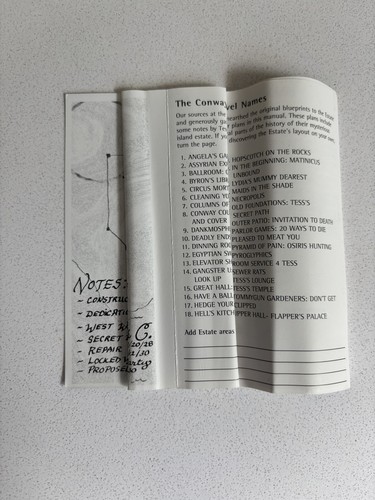 NOTES:
- CONSTRUC
- DEDICATI
- WEST W
- SECRET
- REPAIR
- LOCKED
- PROPOSE
C.
The Conway vel Names
Our sources at the earched the original blueprints to the Estate
and generously ga plans in this manual. These plans include
some notes by Te parts of the history of their mysterious
island estate. If yo discovering the Estate's layout on your own,
turn the page.
1. ANGELA'S GA HOPSCOTCH ON THE ROCKS
2. ASSYRIAN EX IN THE BEGINNING: MATINICUS
3. BALLROOM: UNBOUND
4. BYRON'S LIB LYDIA'S MUMMY DEAREST
5. CIRCUS MOR MAIDS IN THE SHADE
6. CLEANING YO NECROPOLIS
7. COLUMNS OF OLD FOUNDATIONS: TESS'S
8. CONWAY COU SECRET PATH
AND COVER OUTER PATIO: INVITATION TO DEATH
9. DANKMOSPH PARLOR GAMES: 20 WAYS TO DIE
10. DEADLY END PLEASED TO MEAT YOU
11. DINNING RO PYRAMID OF PAIN: OSIRIS HUNTING
12. EGYPTIAN SW PYROGLYPHICS
13. ELEVATOR SH ROOM SERVICE 4 TESS
14. GANGSTER L SEWER RATS
LOOK UP TESS'S LOUNGE
15. GREAT HALL TESS'S TEMPLE
16. HAVE A BALL TOMMYGUN GARDENERS: DON'T GET
17. HEDGE YOUR CLIPPED
18. HELL'S KITCH UPPER HALL- FLAPPER'S PALACE
Add Estate areas